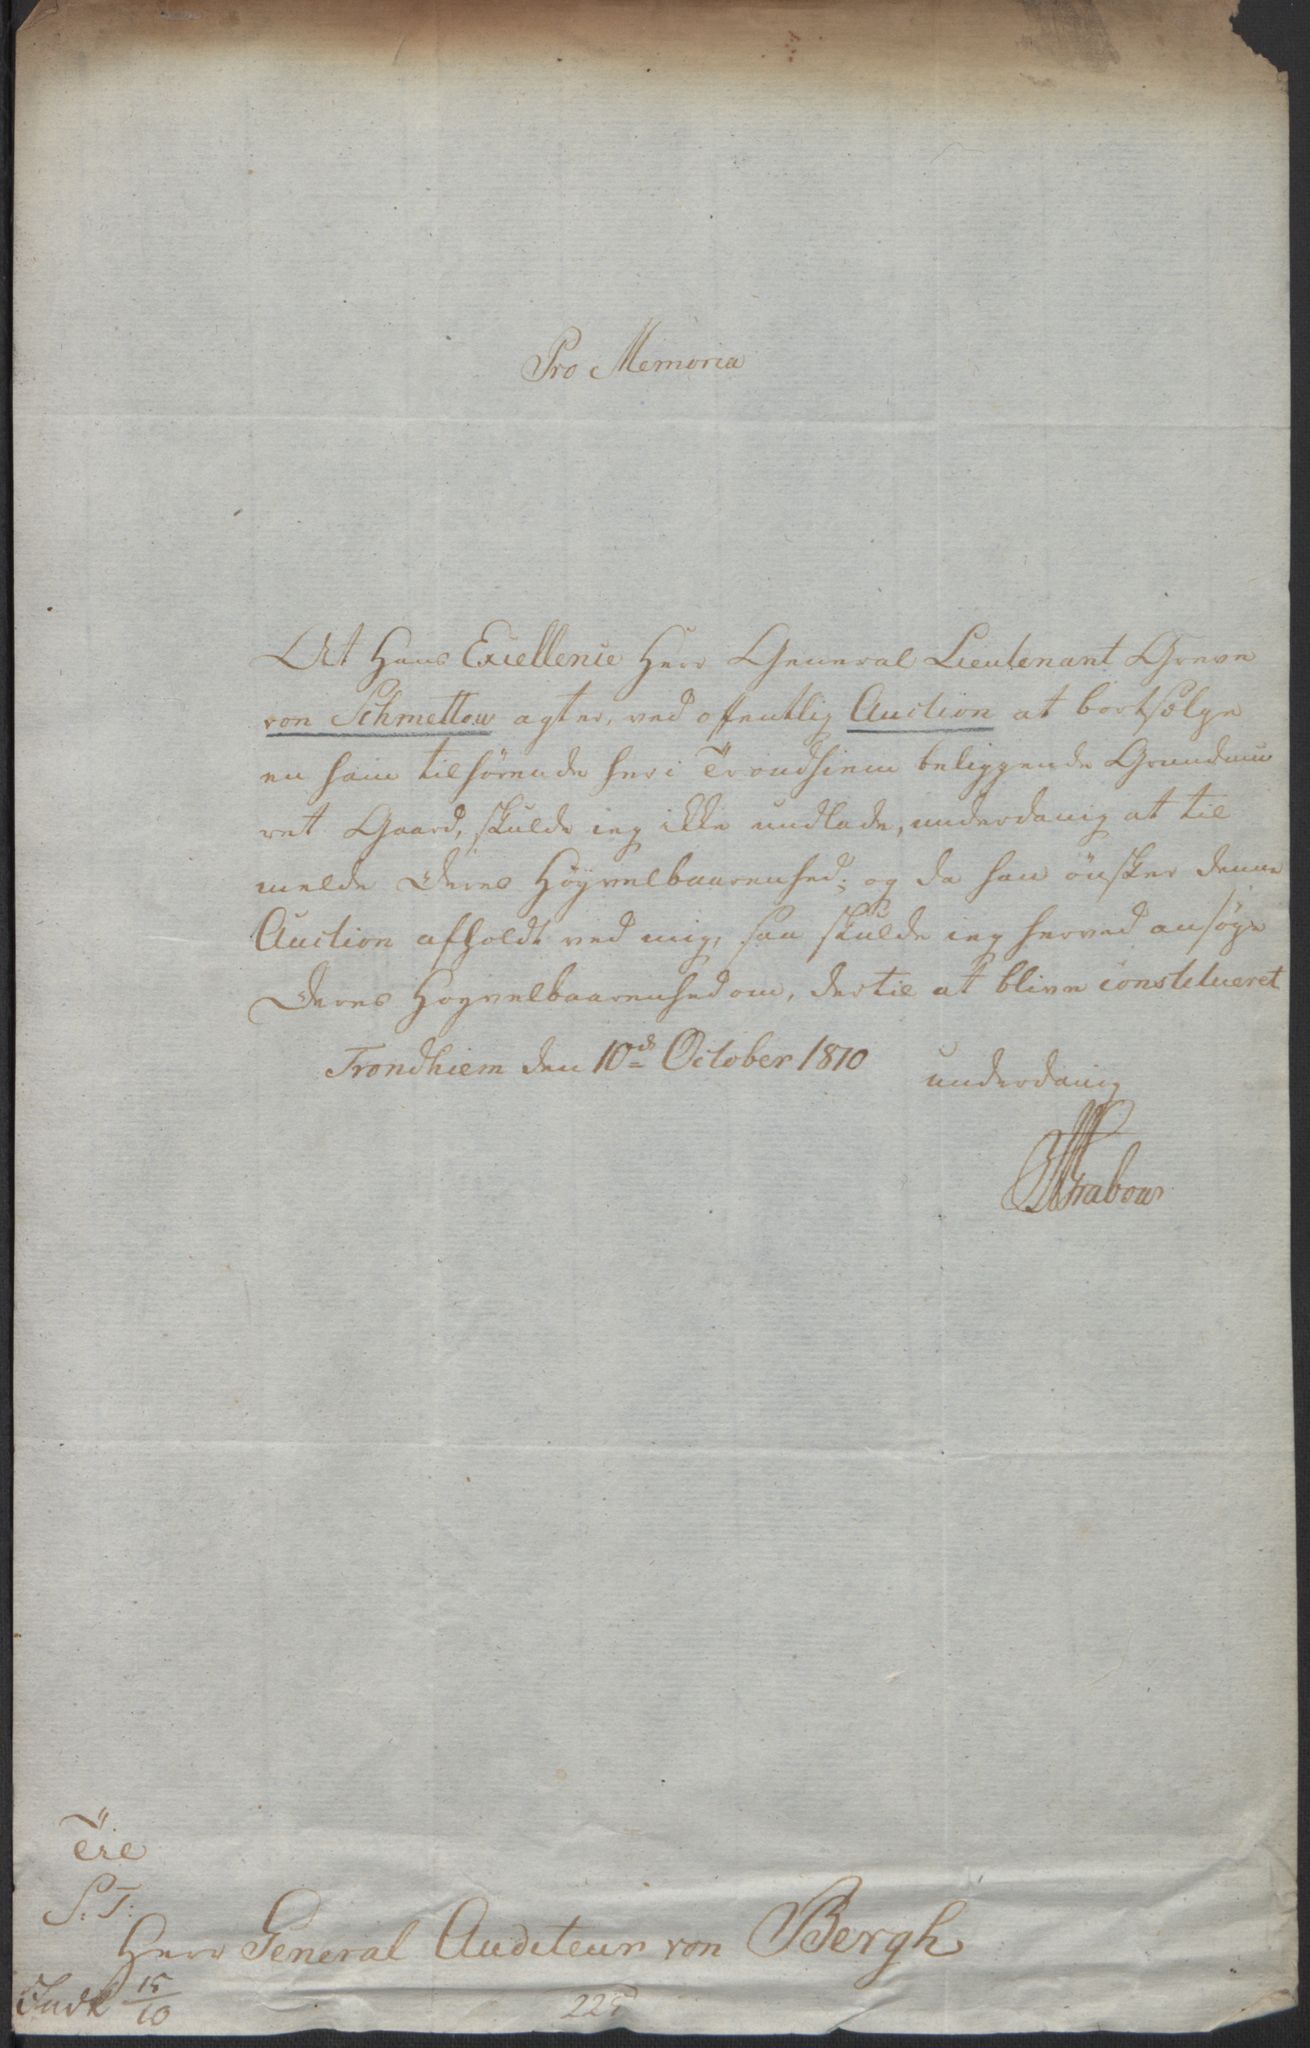 Pro Memoria
At Hans Excellence Herr General Lieutenant Greve
von Schmettow agter, ved offentlig Auction at bortsælge
en ham tilhørende her i Trondhiem beliggende Grundmu
ret Gaard, skulde ieg ikke undlade, underdanig at til
melde Deres Höÿvelbaarenhed; og da han önsker denne
Auction afholdt ved mig, saa skulde ieg herved ansöge
Deres Hoyvelbaarenhed om, dertil at blive constitueret
Trondhiem den 10de October 1810
underdanig
Grabow
Til
S: T:
Herr General Auditeur von Bergh
Indk 15/10